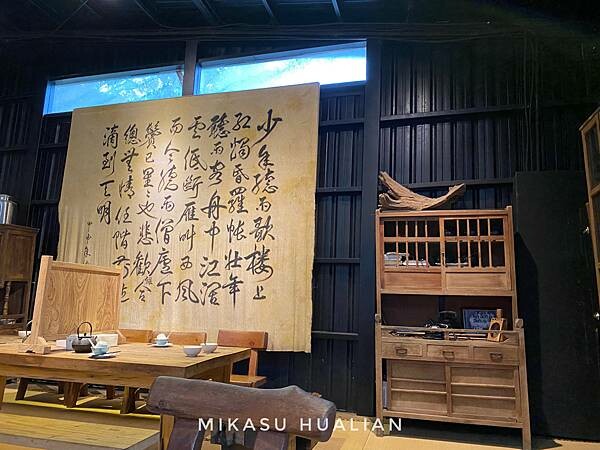 少年聽雨歌樓上
紅燭昏羅帳壯年
聽雨客舟中江闊
雲低斷雁叫西風
而今聽雨僧廬下
鬢已星也悲歡離合
總無情任階前點
滴到天明
MIKASU HUALIAN